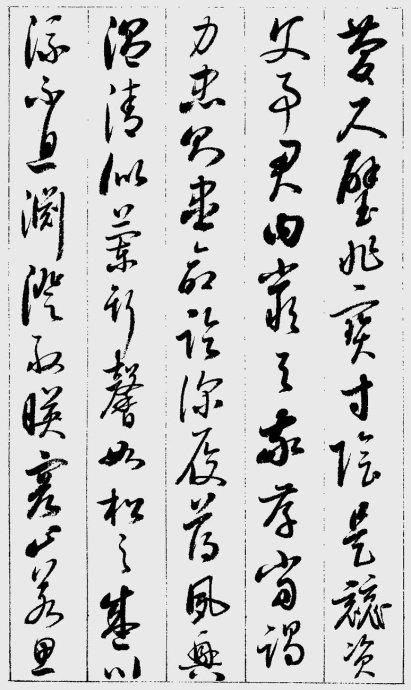 慶尺璧非寶寸陰是競資
父事君曰嚴與敬孝當竭
力忠則盡命臨深履薄夙興
溫清似蘭斯馨如松之盛川
流不息淵澄取映容止若思